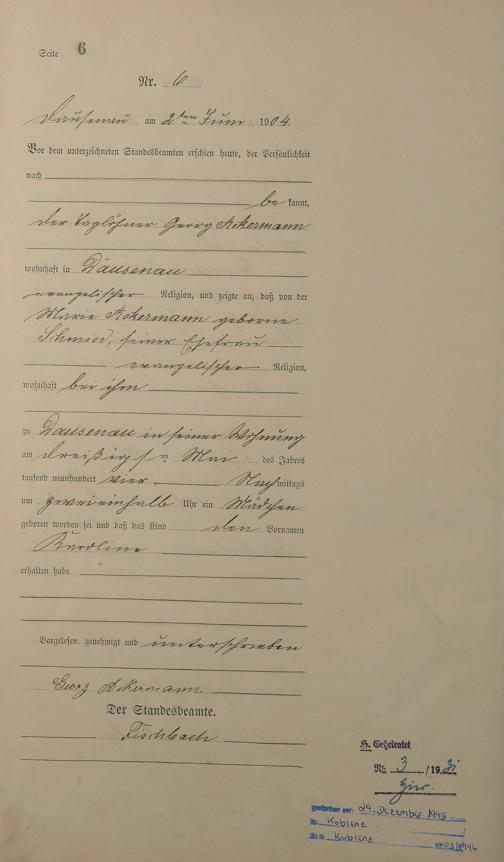 Seite 6
Nr. 6
Dausenau am 2ten Juni 1904.
Vor dem unterzeichneten Standesbeamten erschien heute, der Persönlichkeit
nach
be kannt,
der Taglöhner Georg Ackermann
wohnhaft in Dausenau
evangelischer Religion, und zeigte an, daß von der
Marie Ackermann geborne
Schmied, seiner Ehefrau
evangelischer Religion,
wohnhaft bei ihm
zu Dausenau in seiner Wohnung
am dreißigsten Mai des Jahres
tausend neunhundert vier Nachmittags
um zweieinhalb Uhr ein Mädchen
geboren worden sei und daß das Kind den Vornamen
Karoline
erhalten habe.
Vorgelesen, genehmigt und unterschrieben
Georg Ackermann.
Der Standesbeamte.
Fischbach
H. Geheiratet
Nr. 3 / 1931
hier.
gestorben am: 29. Dezember 1995
in Koblenz
StA Koblenz